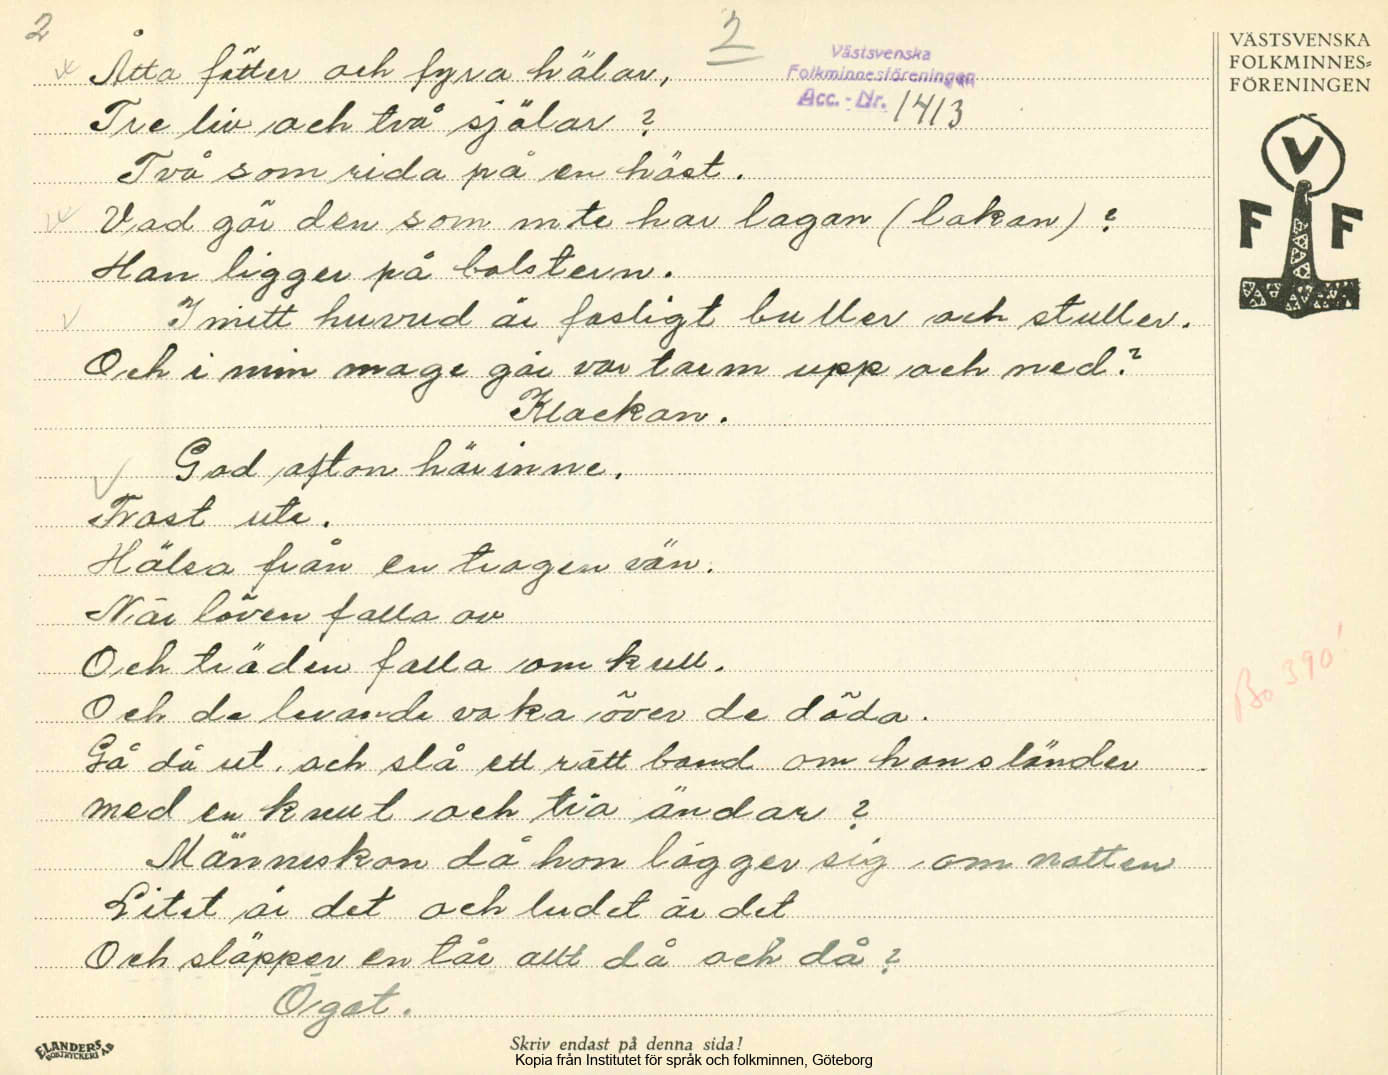 2
2
Västsvenska
Folkminnesföreningen
Acc. - Nr. 1413
VÄSTSVENSKA
FOLKMINNES=
FÖRENINGEN
V
F F
Åtta fötter och fyra hälar,
Tre liv och två själar ?
Två som rida på en häst.
Vad gör den som inte har lagan (lakan) ?
Han ligger på bolstern.
I mitt huvud är fasligt buller och stuller.
Och i min mage går var tarm upp och ned?
Klockan.
God afton härinne.
Frost ute.
Hälsa från en trogen vän.
När löven falla av
Och träden falla om kull.
Och de levande vaka över de döda.
Gå då ut, och slå ett rött band om hans länder
med en knut och tra ändar ?
Människan då hon lägger sig om natten
Litet är det och ludet är det
Och släpper en tår allt då och då ?
Ögat.
Bo 390!
ELANDERS
BOKTRYCKERI AB
Skriv endast på denna sida!
Kopia från Institutet för språk och folkminnen, Göteborg